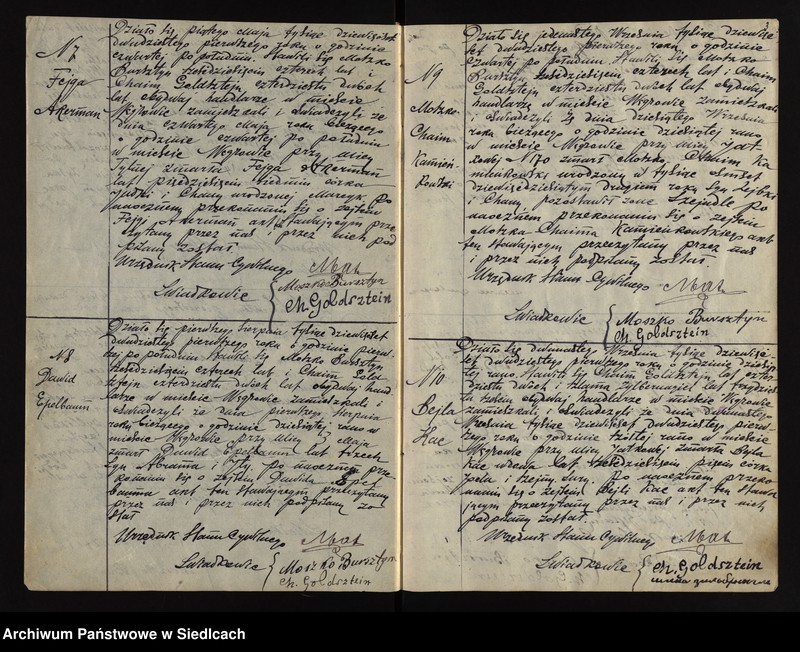 N 7
Fejga
Akerman
Działo się piątego Maja tysiąc dziewięćset
dwudziestego pierwszego roku o godzinie
czwartej po południu. Stawili się Moszko
Bursztyn sześćdziesięciu czterech lat i
Chaim Goldsztejn czterdziestu dwóch
lat obydwaj handlarze w mieście
Węgrowie zamieszkali i oświadczyli że
dnia czwartego Maja roku bieżącego
o godzinie czwartej po południu
w mieście Węgrowie przy ulicy
Tylnej zmarła Fejga Akerman
lat pięćdziesięciu siedmiu córka
Judki i Chany urodzonej Po
naocznem przekonaniu się o zejściu
Fejgi Akerman akt stawającym prze
czytany przez nas i przez nich pod
pisany został.
Urzędnik Stanu Cywilnego
Świadkowie
Moszko Bursztyn
Ch. Goldsztein
N 8
Dawid
Epelbaum
Działo się pierwszego Sierpnia tysiąc dziewięćset
dwudziestego pierwszego roku o godzinie pierw-
szej po południu Stawili się Moszko Bursztyn
sześćdziesięciu czterech lat i Chaim Gold
sztejn czterdziestu dwóch lat obydwaj hand
larze w mieście Węgrowie zamieszkali i
oświadczyli że dnia pierwszego Sierpnia
roku bieżącego o godzinie dziesiątej rano w
mieście Węgrowie przy ulicy 3 Maja
zmarł Dawid Epelbaum lat trzech
syn Abrama i Ity, po naocznem prze
konaniu się o zejściu Dawida Epel
bauma akt ten stawającym przeczytany
przez nas i przez nich podpisany zo
stał
Urzędnik Stanu Cywilnego
Świadkowie
Moszko Bursztyn
Ch. Goldsztein
3
N 9
Moszko
Chaim
Kamień-
Kowski
Działo się jedenastego Września tysiąc dziewięć
set dwudziestego pierwszego roku, o godzinie
czwartej po południu. Stawili się Moszko
Bursztyn sześćdziesięciu czterech lat i Chaim
Goldsztejn czterdziestu dwóch lat obydwaj
handlarze w mieście Węgrowie zamieszkali
i oświadczyli iż dnia dziesiątego Września
roku bieżącego o godzinie dziesiątej rano
w mieście Węgrowie przy ulicy Jat
kowej N 70 zmarł Moszko, Chaim Ka
mieńkowski urodzony w tysiąc ośmset
dziewięćdziesiątym drugim roku syn Lejbki
i Chany, pozostawił żonę Szejndlę Po
naocznem przekonaniu się o zejściu
Moszka Chaima Kamieńkowskiego akt
ten stawającym przeczytany przez nas
i przez nich podpisany został.
Urzędnik Stanu Cywilnego
Świadkowie
Moszko Bursztyn
Ch. Goldsztein
N 10
Bejla
Kac
Działo się dwunastego Września tysiąc dziewięć-
set dwudziestego pierwszego roku o godzinie dziesią
tej rano. Stawili się Chaim Goldsztejn lat czter
dziestu dwóch i Szlama Zylbernagiel lat trzydzies
tu obydwaj handlarze w mieście Węgrowie
zamieszkali i oświadczyli że dnia dwunastego
Września tysiąc dziewięćset dwudziestego pierw-
szego roku o godzinie szóstej rano w mieście
Węgrowie przy ulicy Jatkowej zmarła Bejla
Kac wdowa lat sześćdziesięciu pięciu córka
i Szejny Sury. Po naocznem przeko
naniu się o zejściu Bejli Kac akt ten stawa
jącym przeczytany przez nas i przez nich
podpisany został.
Urzędnik Stanu Cywilnego
Świadkowie
Ch. Goldsztein
Archiwum Państwowe w Siedlcach